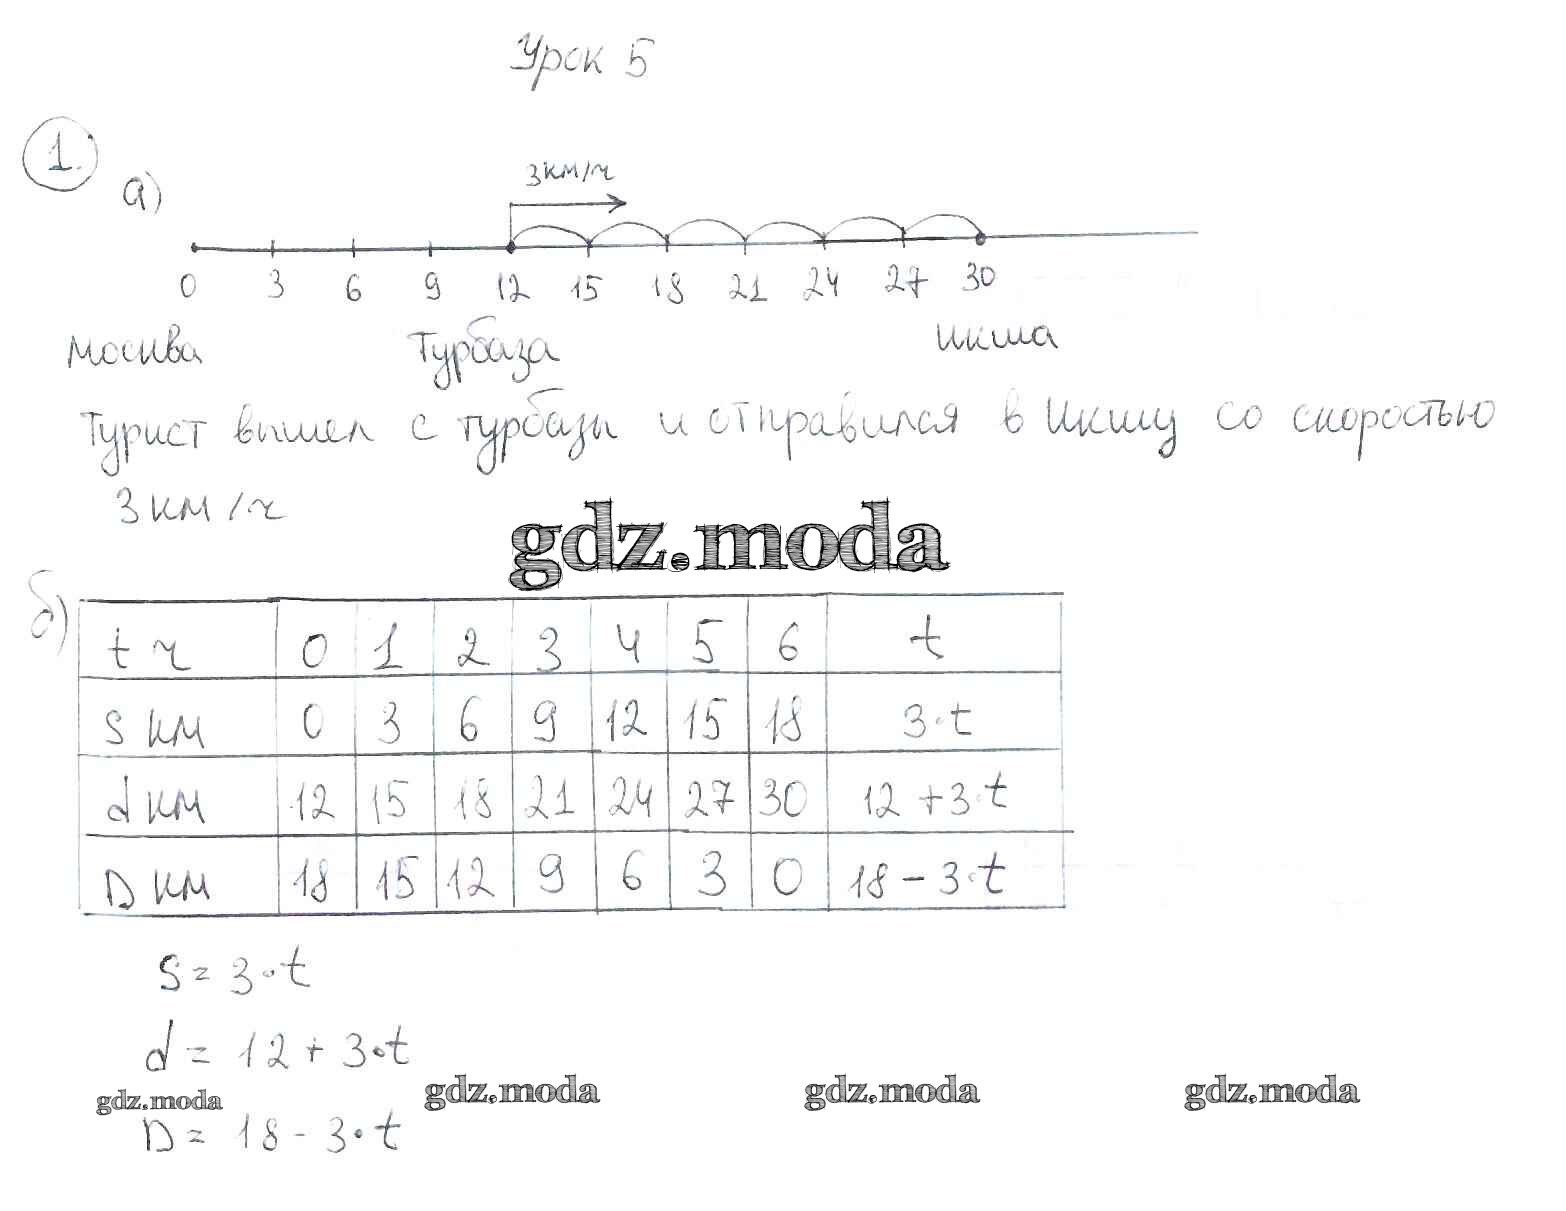 Урок 5
1.
а)
3км/ч
0 3 6 9 12 15 18 21 24 27 30
Москва Турбаза Икша
Турист вышел с турбазы и отправился в Икшу со скоростью
3 км/ч
gdz.moda
б)
t ч 0 1 2 3 4 5 6 t
s км 0 3 6 9 12 15 18 3·t
d км 12 15 18 21 24 27 30 12+3·t
D км 18 15 12 9 6 3 0 18-3·t
S = 3·t
d = 12 + 3·t
gdz.moda gdz.moda gdz.moda gdz.moda
D = 18 - 3·t